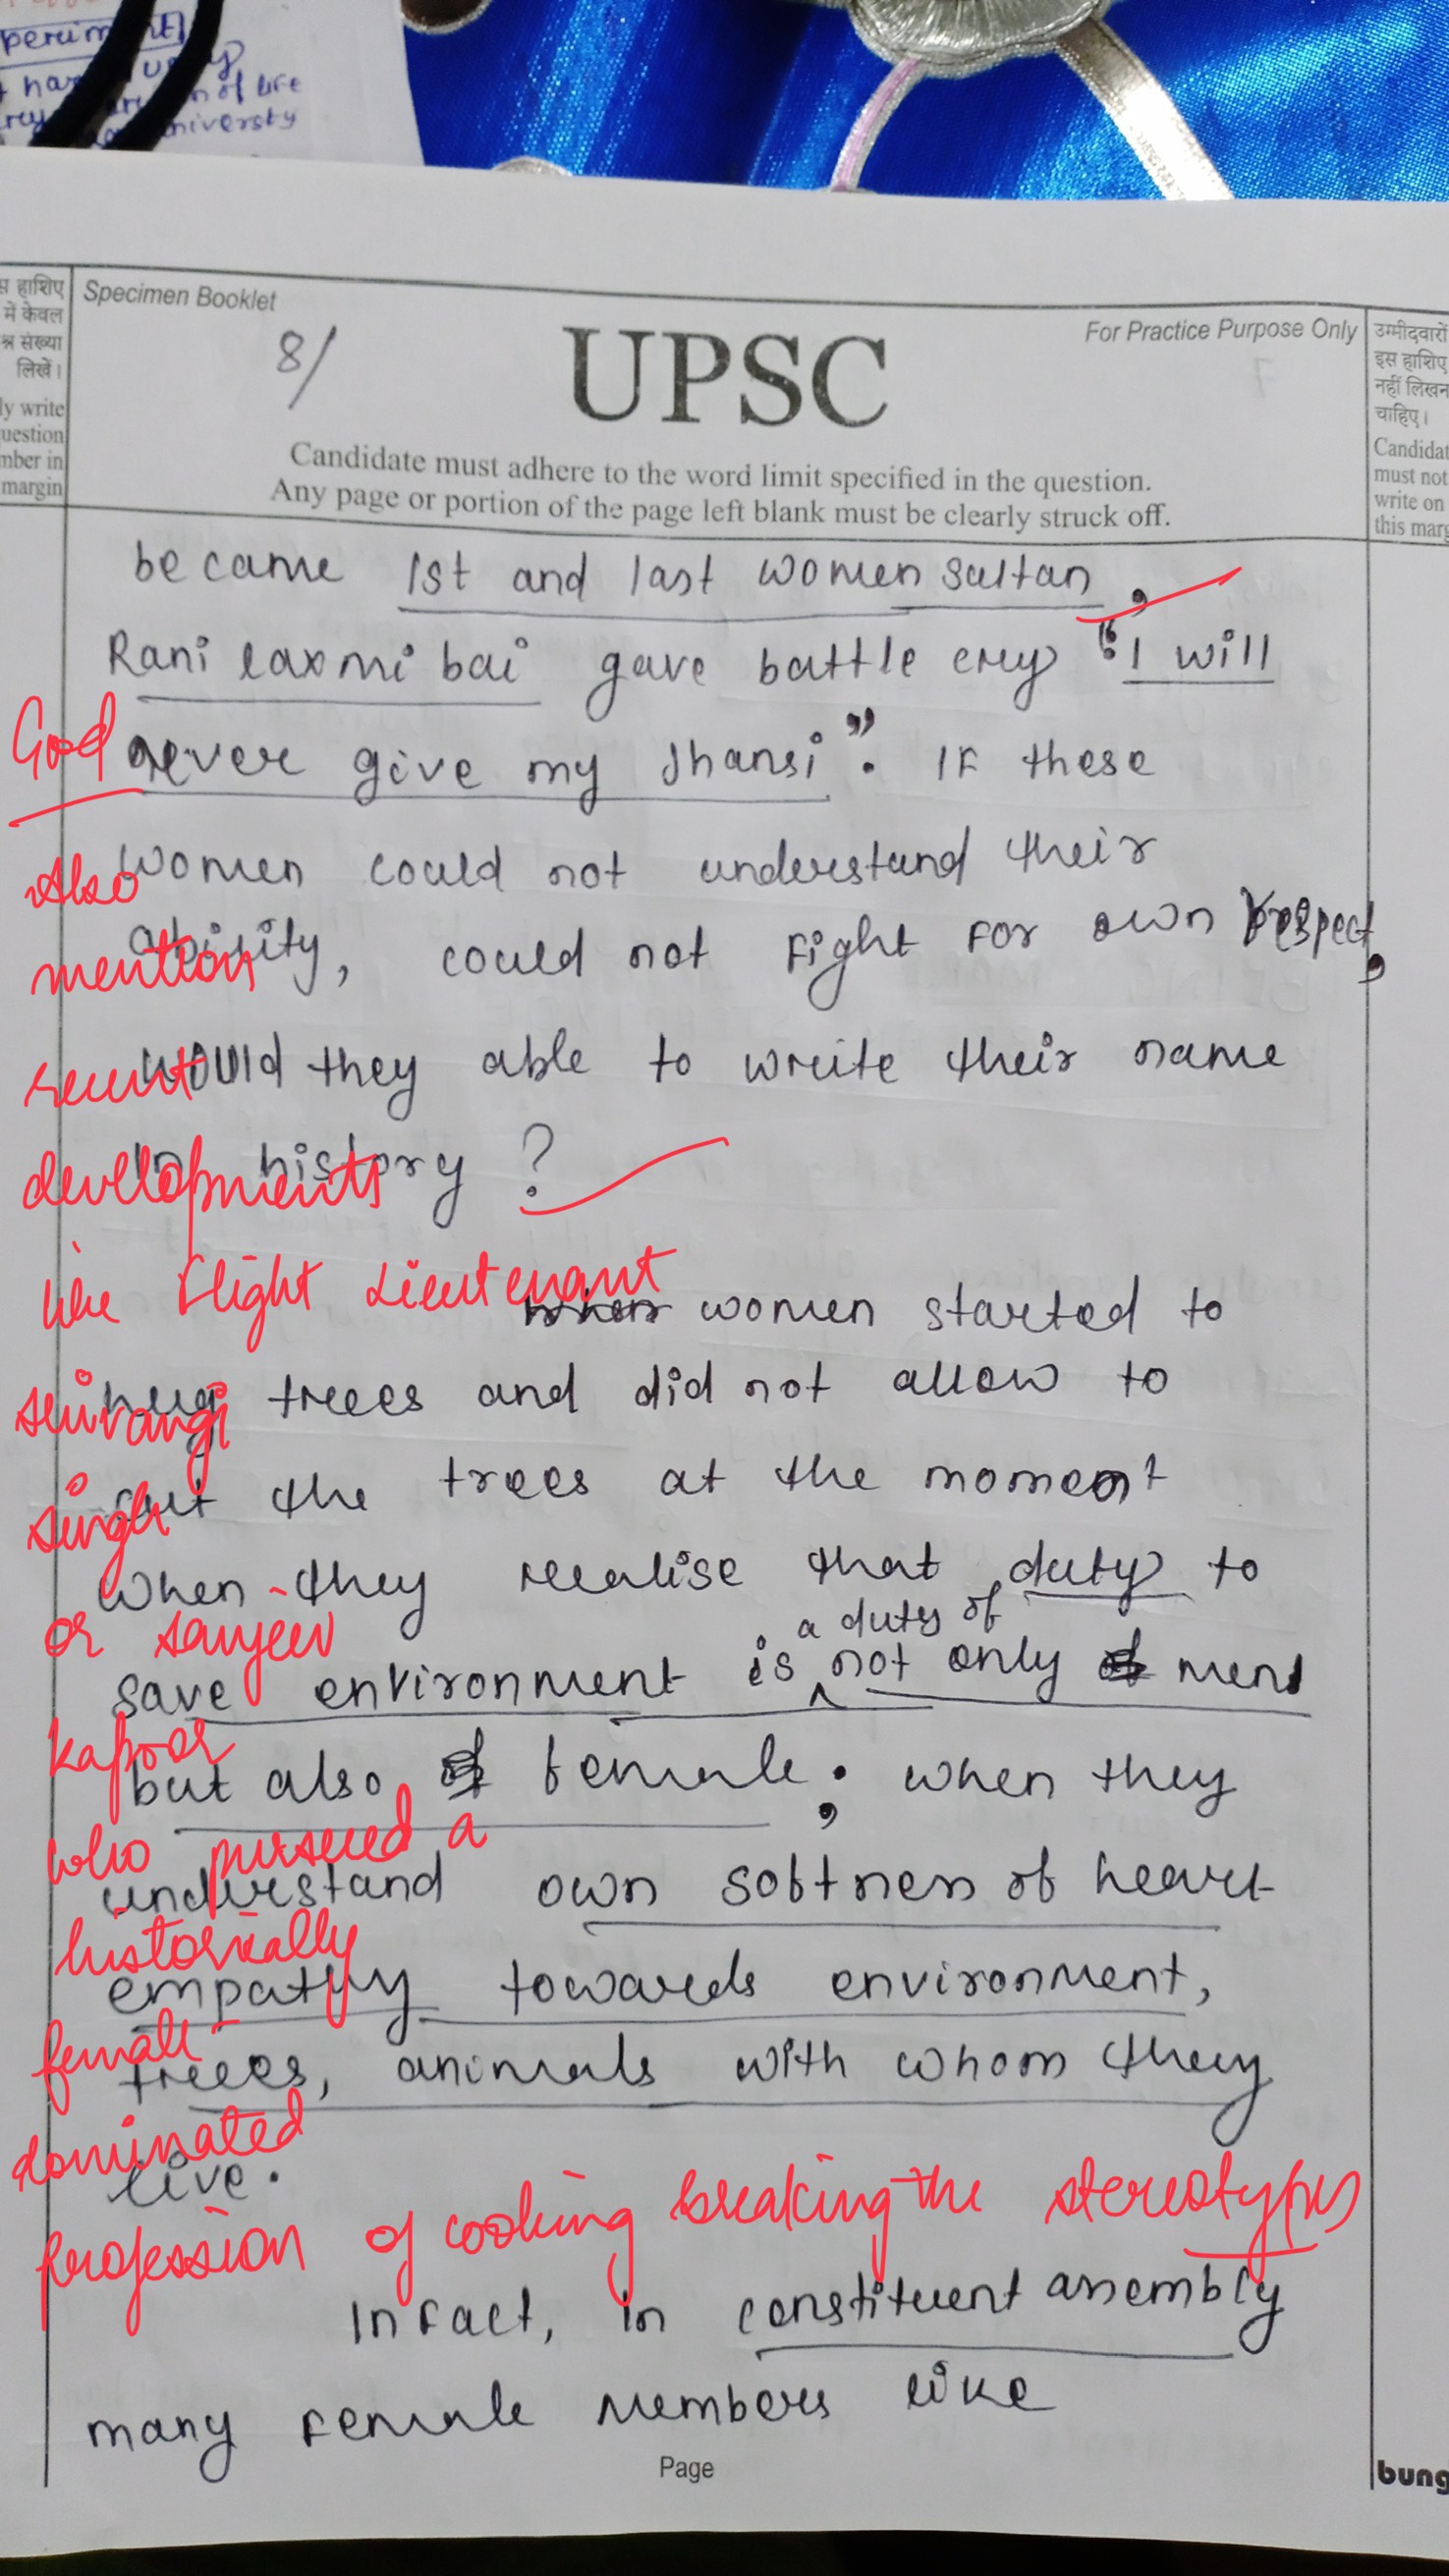 periment
of life
university
स हाशिए
में केवल
श्न संख्या
लिखें।
ly write
uestion
mber in
margin
Specimen Booklet
8/
UPSC
For Practice Purpose Only
उम्मीदवारों
इस हाशिए
नहीं लिखन
चाहिए।
Candidat
must not
write on
this marg
Candidate must adhere to the word limit specified in the question.
Any page or portion of the page left blank must be clearly struck off.
became 1st and last women sultan,
Rani laxmi bai gave battle cry "I will
never give my Jhansi". If these
women could not understand their
ability, could not fight for own respect,
would they able to write their name
in history?
women started to
hug trees and did not allow to
cut the trees at the moment
when they realise that duty to
a duty of
save environment is not only men
but also female; when they
understand own softness of heart
empathy towards environment,
trees, animals with whom they
live.
Infact, in constituent assembly
many female members like
God
Also
mention
recent
developments
like Flight Lieutenant
Shivangi
Singh
or Sanjeev
Kapoor
who pursued a
historically
female
dominated
profession of cooking breaking the stereotypes
Page
bung